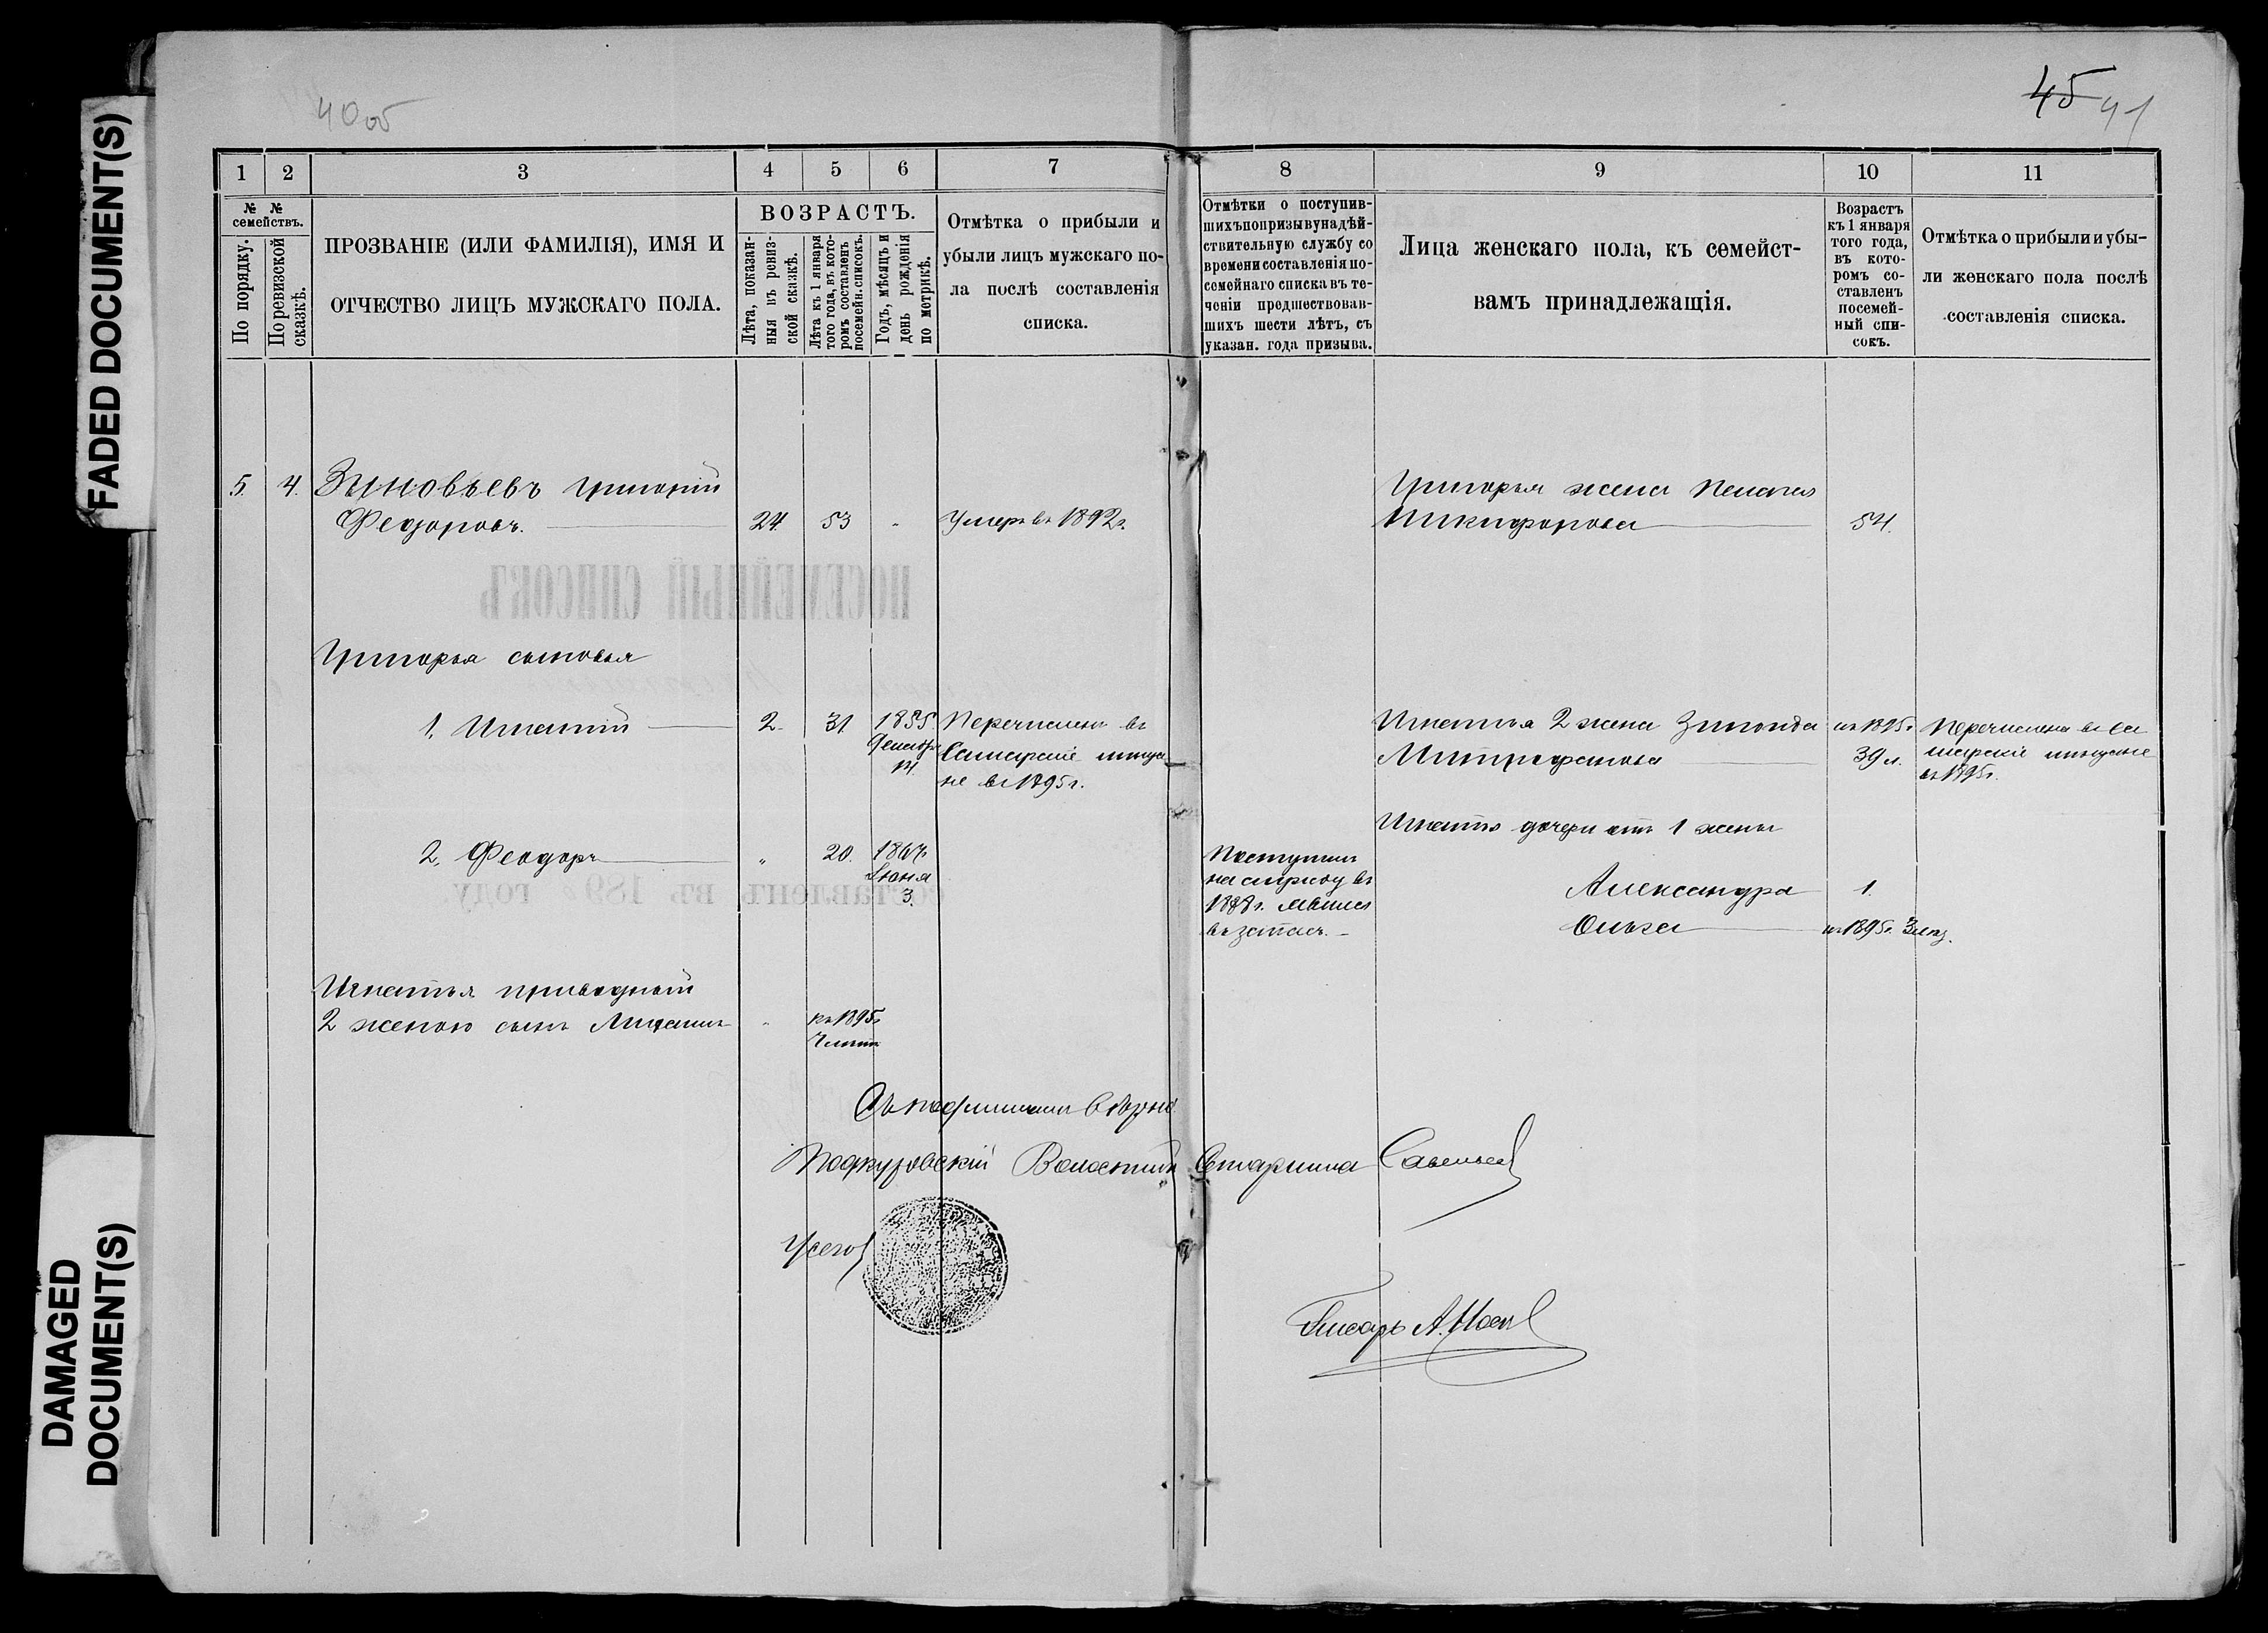 FADED DOCUMENT(S)
DAMAGED
DOCUMENT(S)
40об
45 41
1 2 3 4 5 6 7
8 9 10 11
№ № семействъ.
По порядку.
По ревизской
сказкѣ.
ПРОЗВАНІЕ (ИЛИ ФАМИЛІЯ), ИМЯ И
ОТЧЕСТВО ЛИЦЪ МУЖСКАГО ПОЛА.
ВОЗРАСТЪ.
Лѣта, показан-
ныя въ ревиз-
ской сказкѣ.
Лѣта къ 1 января
того года, въ кото-
ромъ составленъ
посемейн. списокъ.
Годъ, мѣсяцъ и
день рожденія
по метрикѣ.
Отмѣтка о прибыли и
убыли лицъ мужскаго по-
ла послѣ составленія
списка.
Отмѣтки о поступив-
шихъ по призыву на дѣй-
ствительную службу со
времени составленія по-
семейнаго списка въ те-
ченіи предшествовав-
шихъ шести лѣтъ, съ
указан. года призыва.
Лица женскаго пола, къ семейст-
вамъ принадлежащія.
Возрастъ
къ 1 января
того года,
въ кото-
ромъ со-
ставленъ
посемей-
ный спи-
сокъ.
Отмѣтка о прибыли и убы-
ли женскаго пола послѣ
составленія списка.
5. 4. Зыновьевъ Григорій
Федоровъ. 24 53 Умеръ въ 1892 г.
Григорья жена Пелагея
Никифорова 54.
ПОСЕМЕЙНЫЙ СПИСОКЪ
Григорья сыновья
1. Игнатій 2 31 1855 Перечисленъ въ
Самарскіе мѣща-
не въ 1895 г.
Игнатья 2 жена Зиновья къ 1895 г.
Митрофанова 39 л.
Перечислена въ Са
марскіе мѣщане
въ 1895 г.
2. Феодоръ " 20. 1867
Іюня
3.
Поступилъ
на службу въ
1888 г.
въ запасъ.
Игнатья дочери отъ 1 жены
Александра 1.
Ольга къ 1895 г.
составленъ въ 189 году.
Игнатья приводный
2 женою сынъ къ 1895 г.
Съ подлиннымъ вѣрно
Волостной Старшина Савельев
Писарь А.